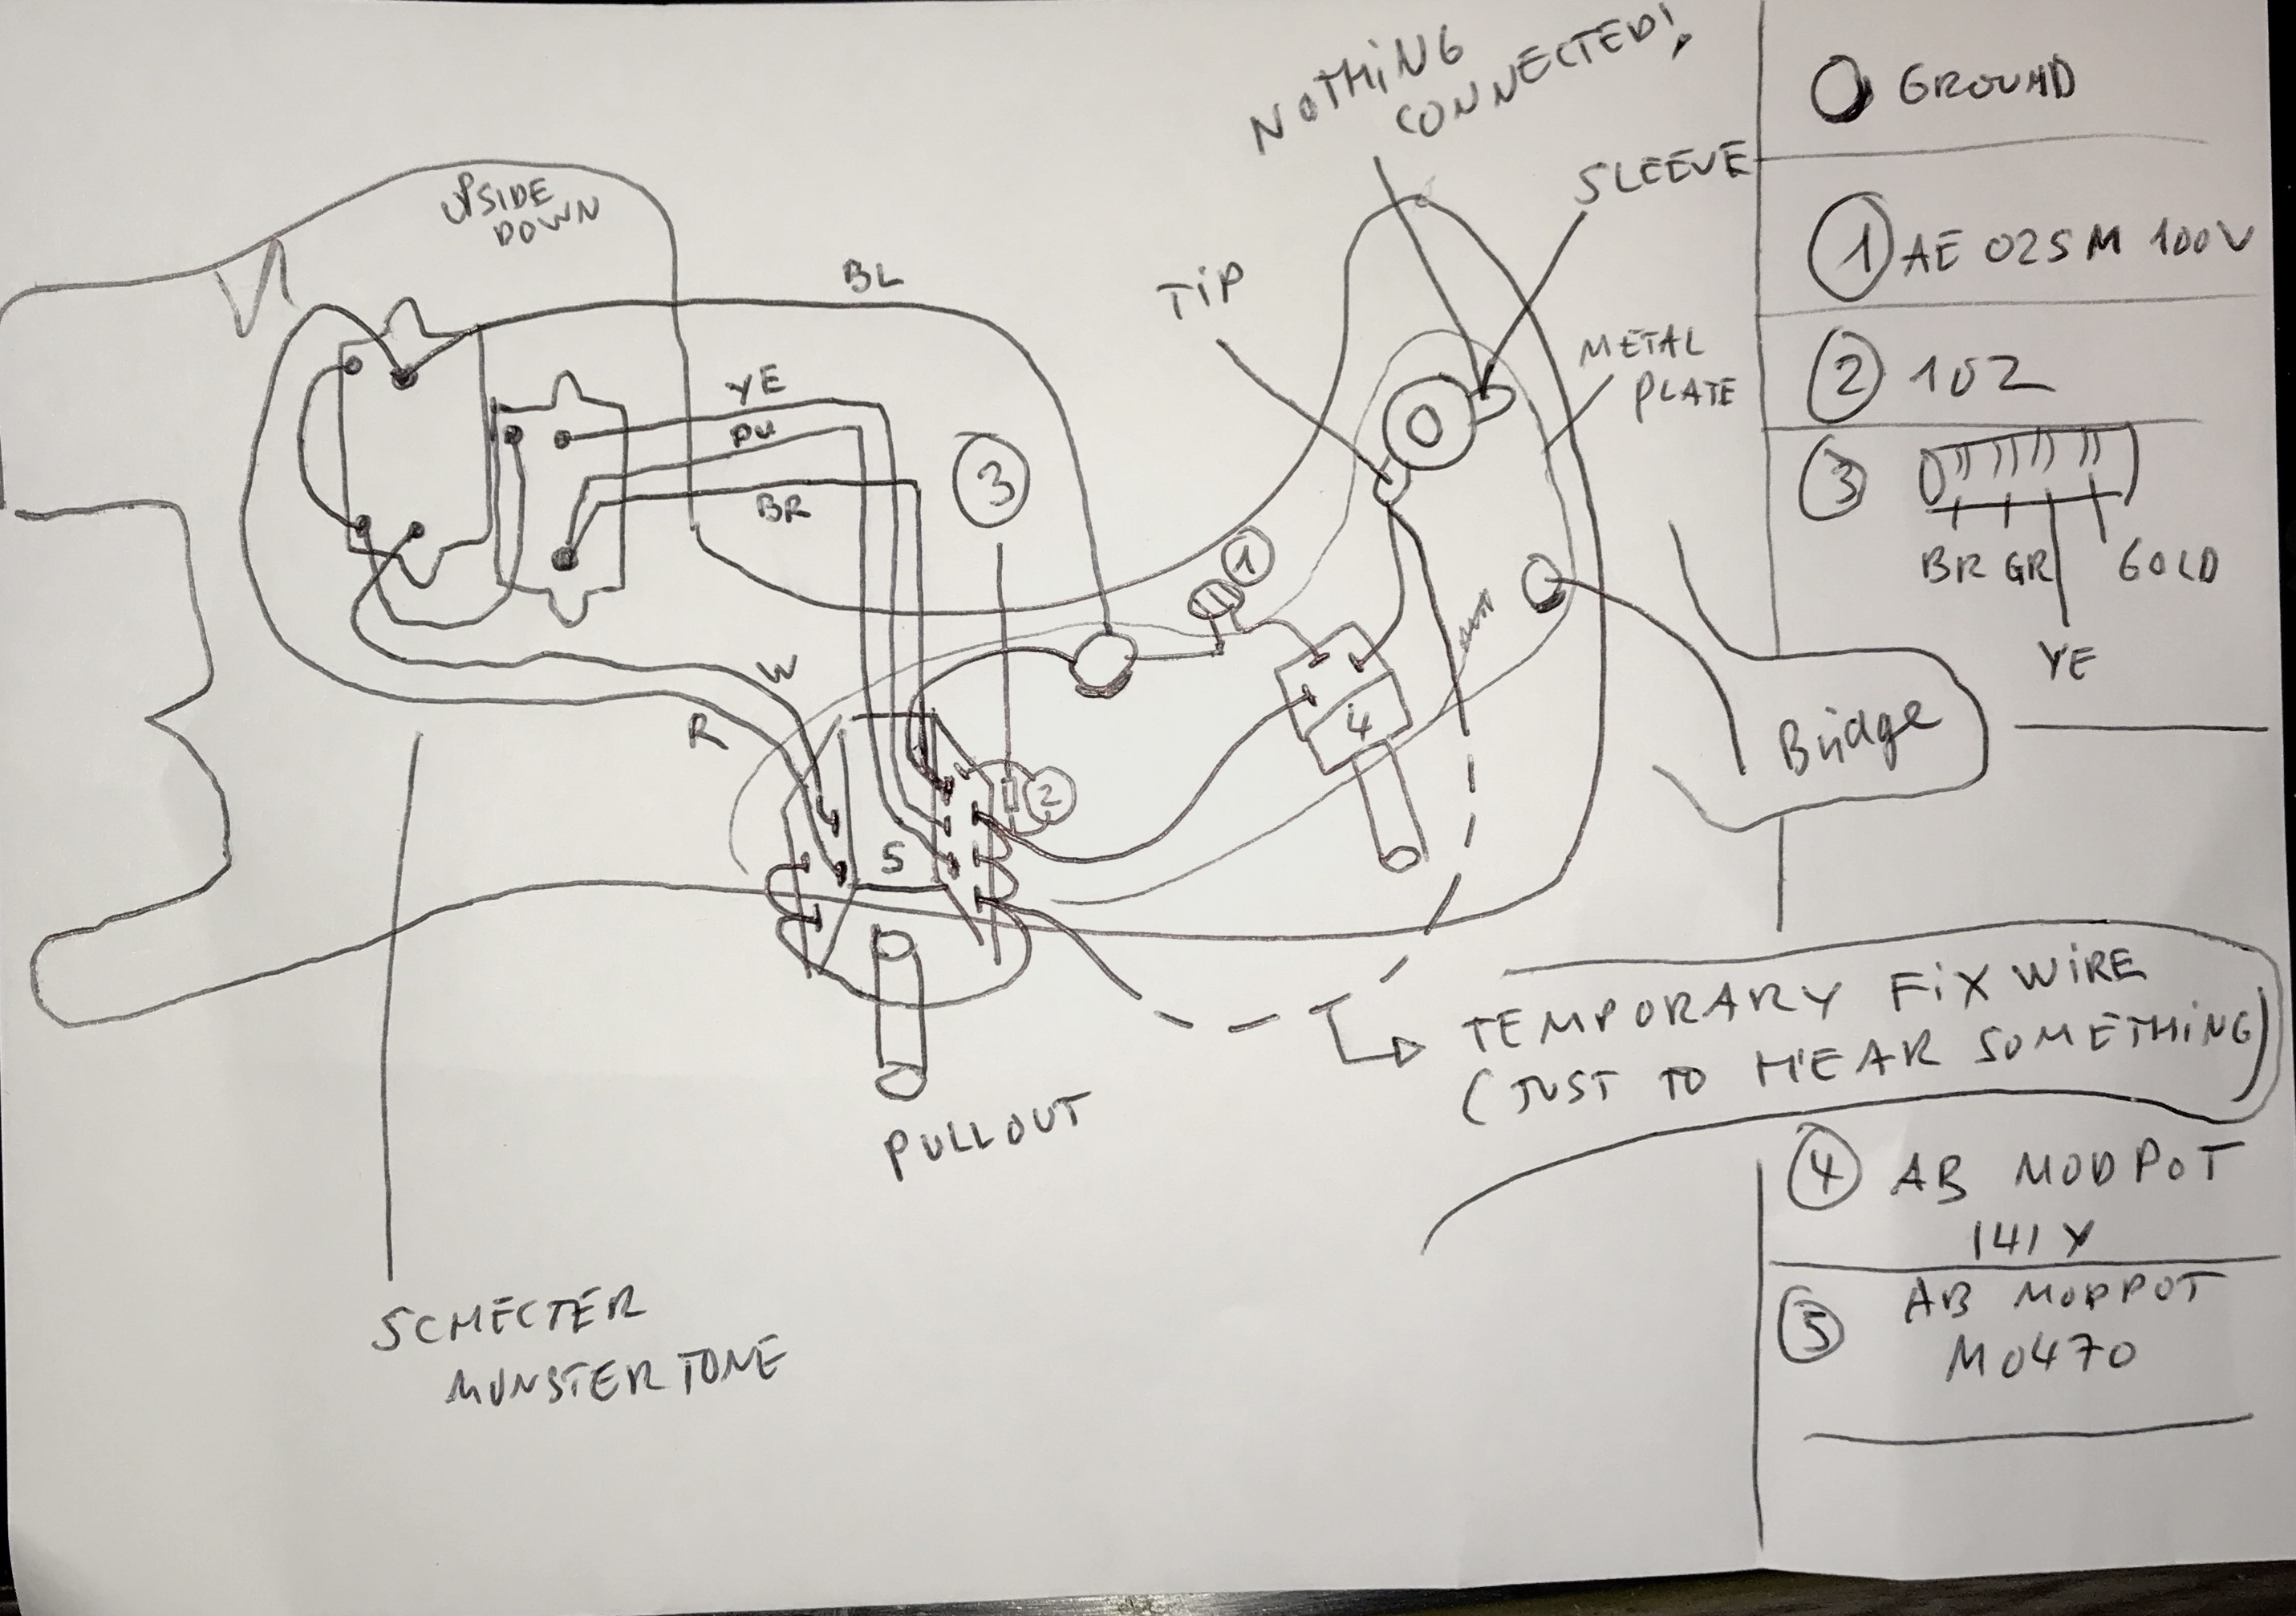 NOTHING
CONNECTED!
SLEEVE
TIP
METAL
PLATE
UPSIDE
DOWN
BL
YE
PU
BR
3
1
W
R
4
2
5
Bridge
PULLOUT
TEMPORARY FIX WIRE
(JUST TO HEAR SOMETHING)
SCHECTER
MONSTER TONE
GROUND
1 AE 025M 100V
2 10Z
3
BR GR GOLD
YE
4 AB MODPOT
141Y
5 AB MODPOT
M0470